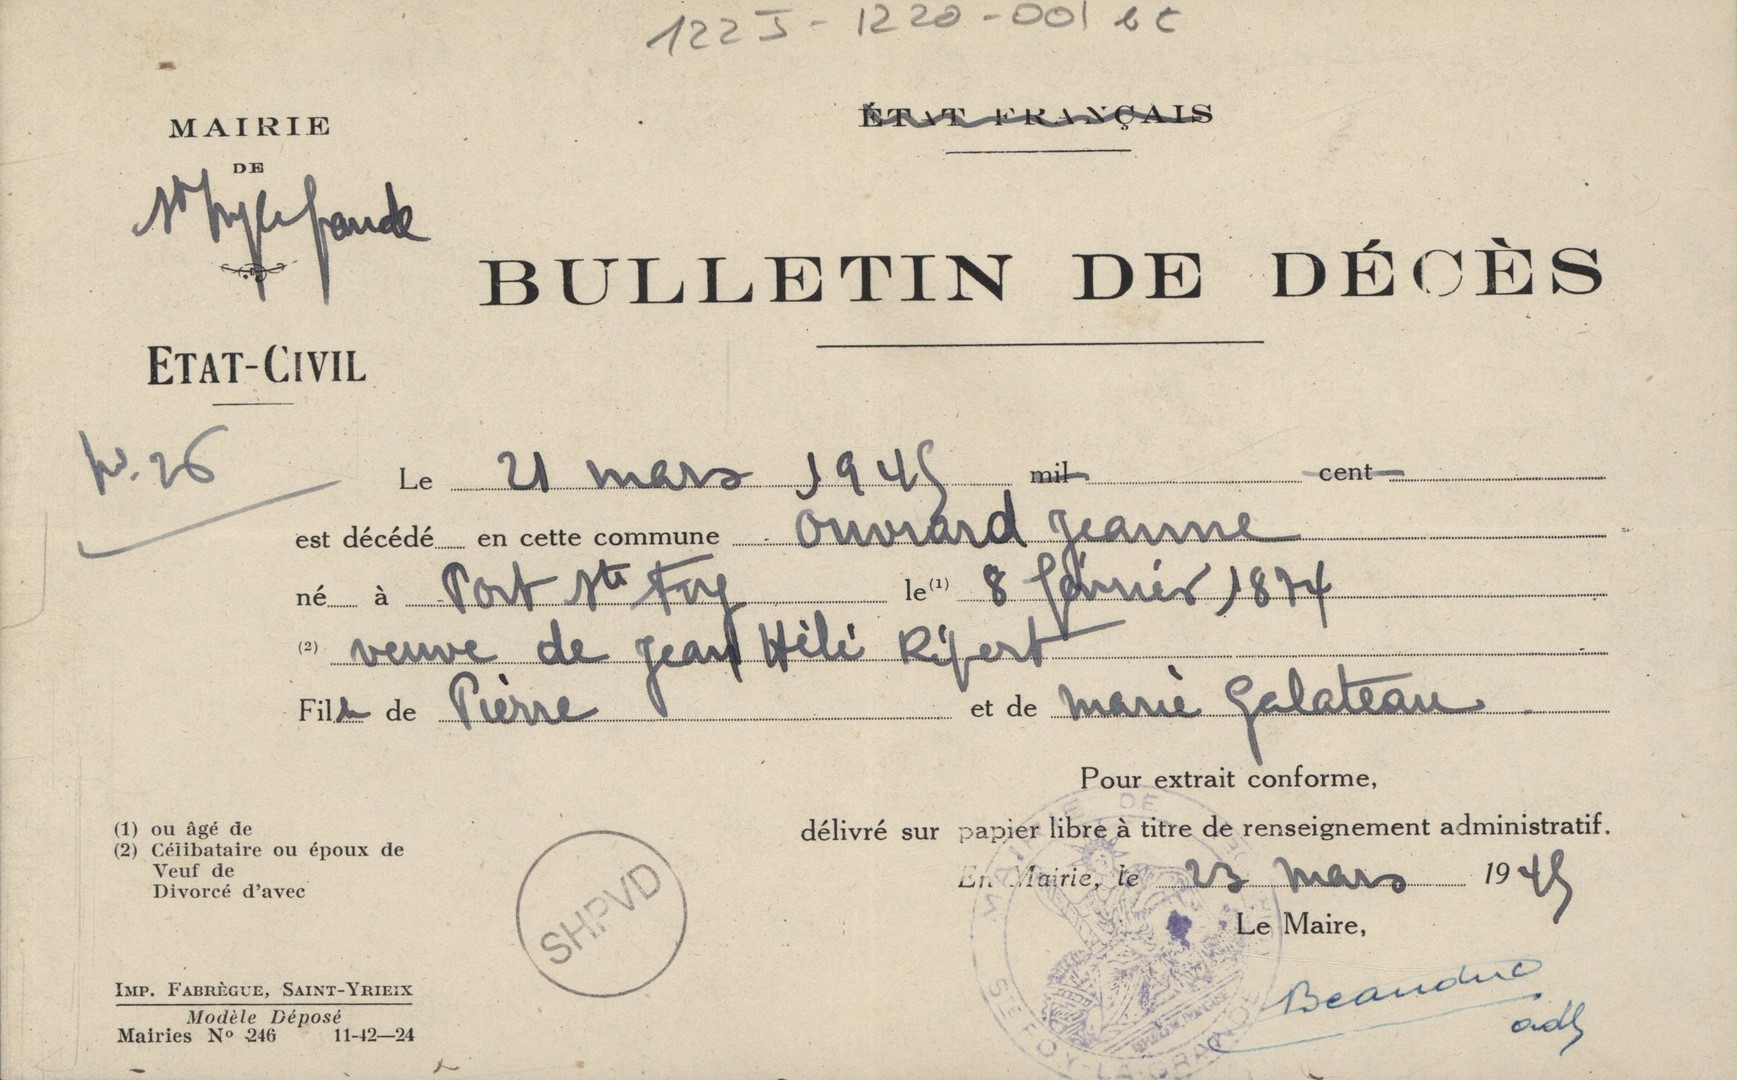 122 J - 1220 - 001 bc
MAIRIE
DE
Ste Foy la Grande
ÉTAT FRANÇAIS
BULLETIN DE DÉCÈS
ETAT-CIVIL
No. 26
Le 21 mars 1945 mil cent
est décédé en cette commune Ouvrard Jeanne
né à Port Ste Foy le (1) 8 février 1874
(2) veuve de Jean Héli Rifert
Fille de Pierre et de Marie Galateau
Pour extrait conforme,
délivré sur papier libre à titre de renseignement administratif.
En Mairie, le 23 mars 1945
Le Maire,
Beauduc
adj
(1) ou âgé de
(2) Célibataire ou époux de
Veuf de
Divorcé d'avec
SHPVD
MAIRIE DE STE FOY-LA-GRANDE
IMP. FABRÈGUE, SAINT-YRIEIX
Modèle Déposé
Mairies No 246 11-42—24